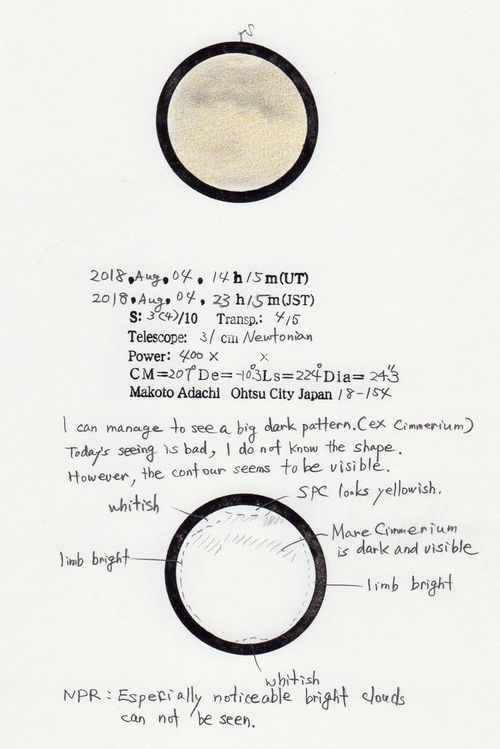 2018, Aug, 04, 14 h 15 m (UT)
2018, Aug, 04, 23 h 15 m (JST)
S: 3(4)/10 Transp.: 4/5
Telescope: 31 cm Newtonian
Power: 400 × ×
CM=207° De=-10.°3 Ls=224° Dia= 24."3
Makoto Adachi Ohtsu City Japan 18-154
I can manage to see a big dark pattern. (ex Cimmerium)
Today's seeing is bad, I do not know the shape.
However, the contour seems to be visible.
whitish
SPC looks yellowish.
Mare Cimmerium
is dark and visible
limb bright
limb bright
whitish
NPR: Especially noticeable bright clouds
can not be seen.